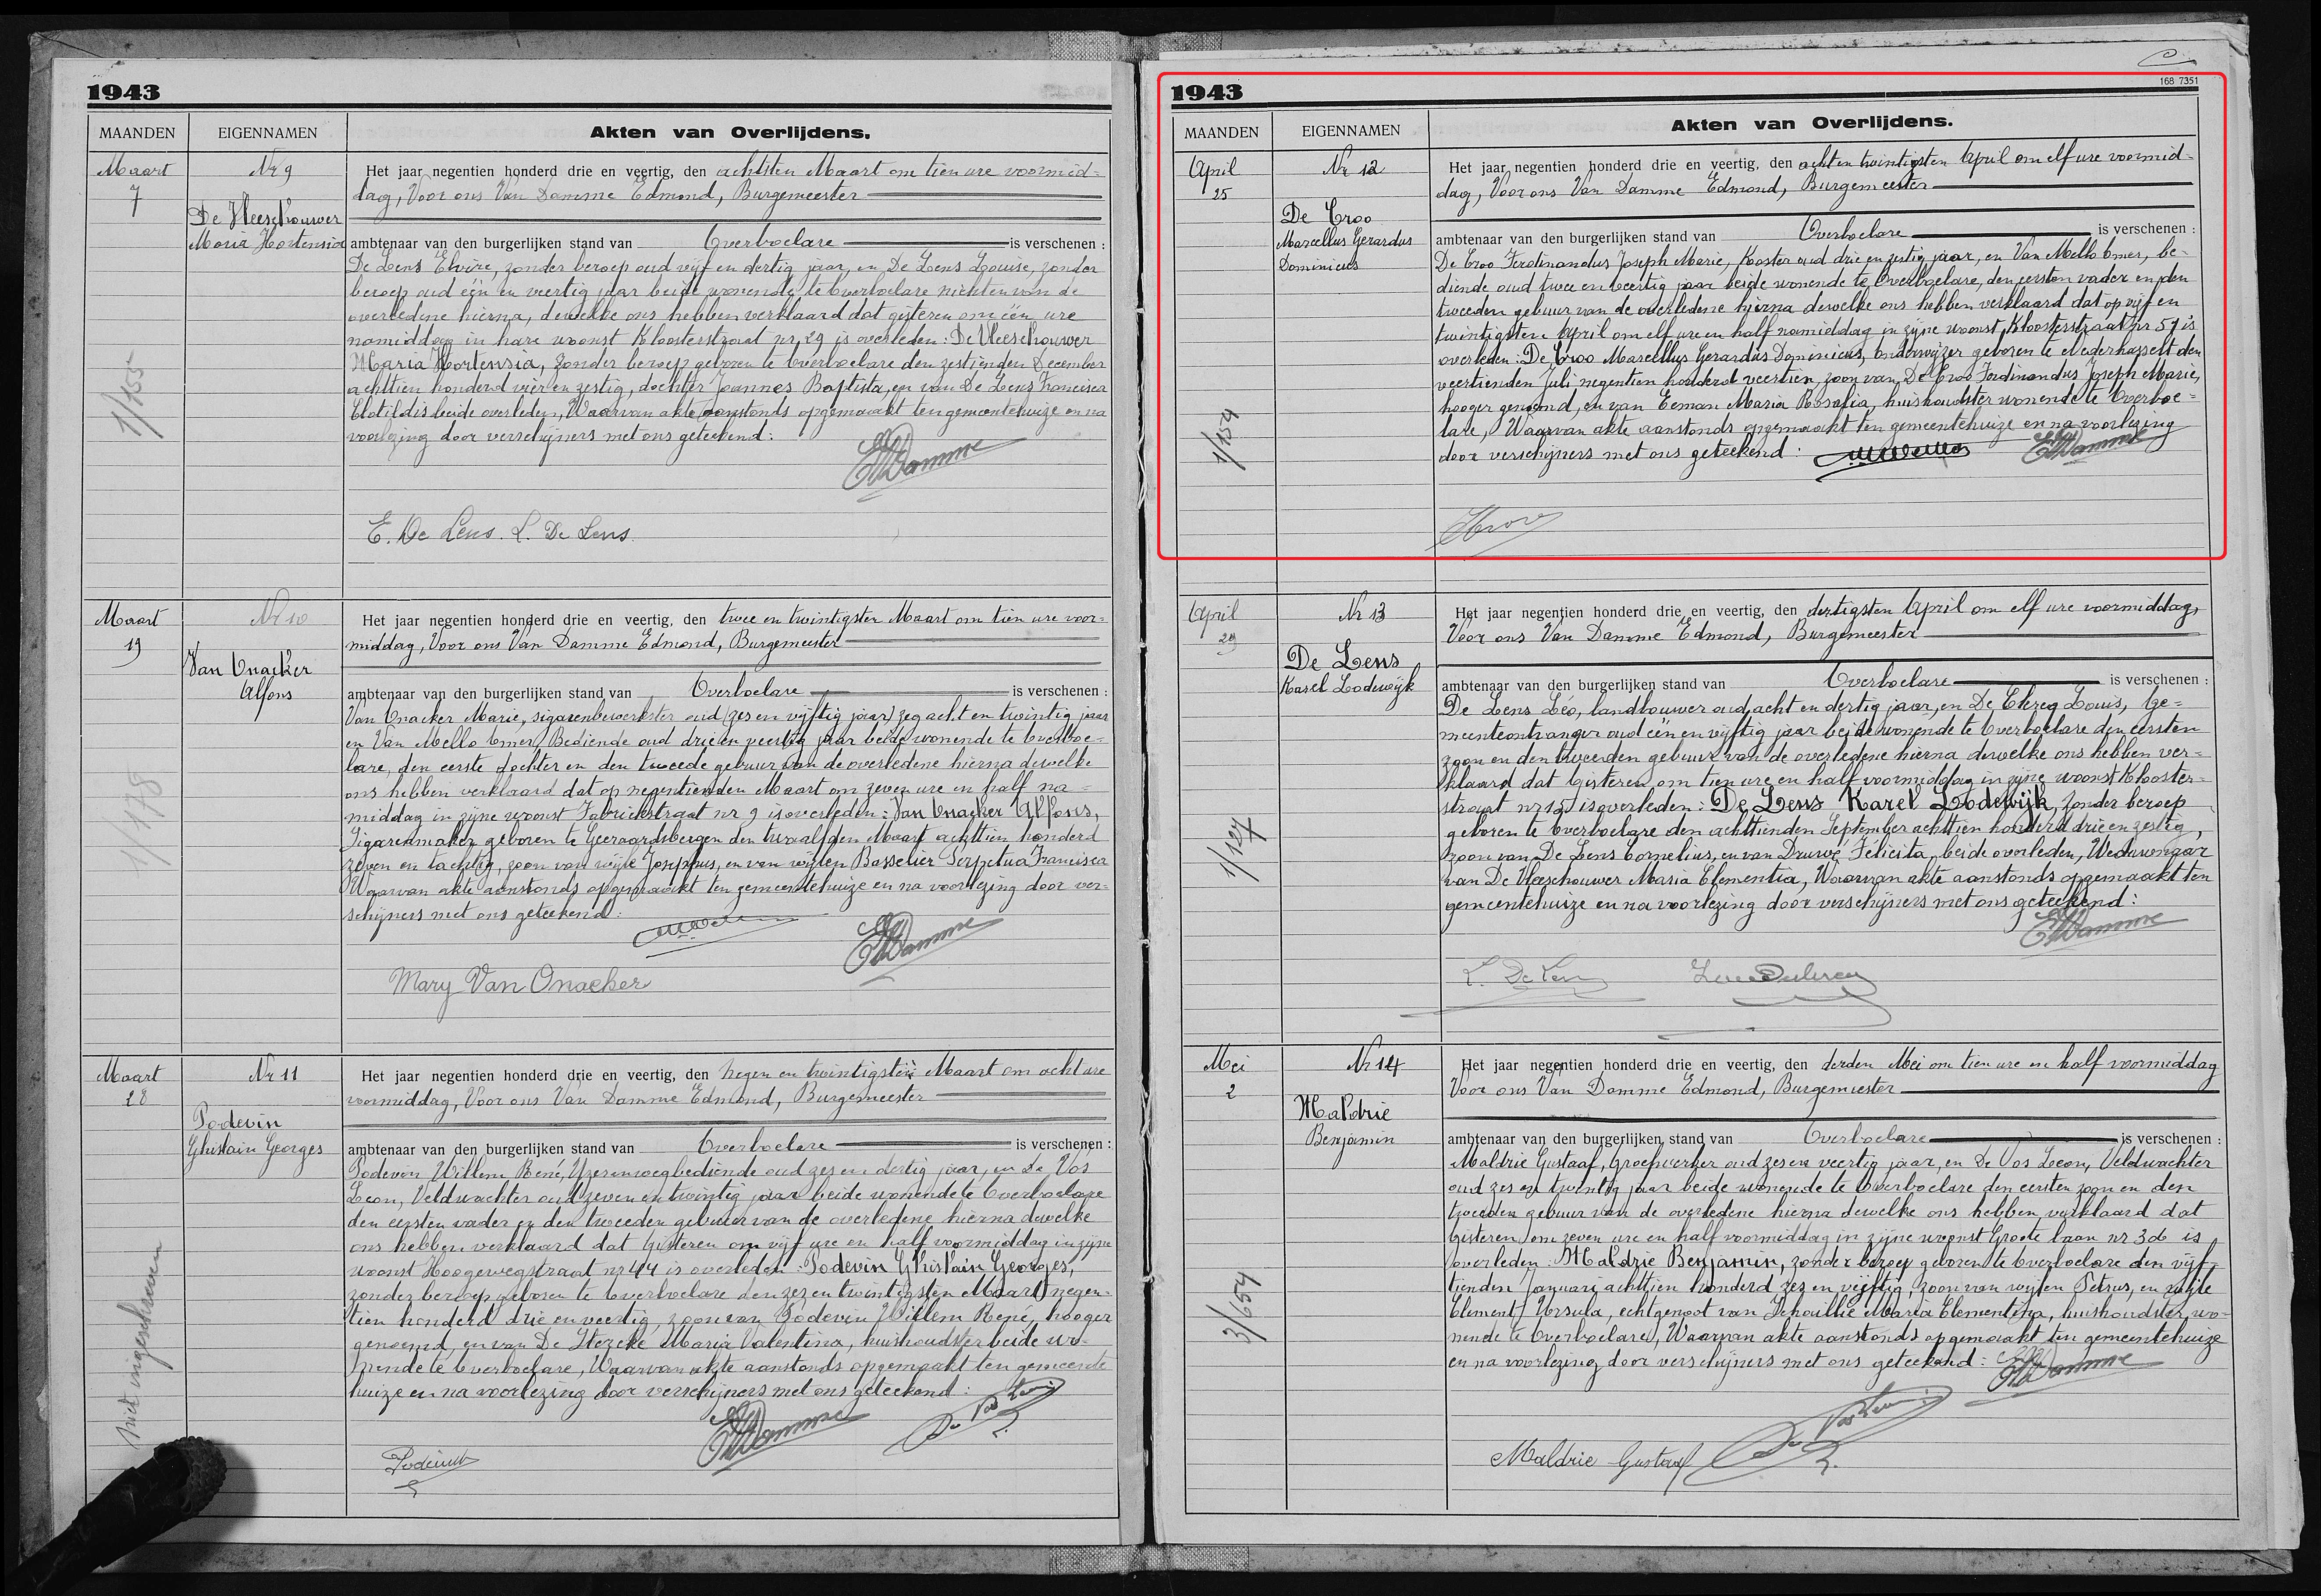 1943
MAANDEN EIGENNAMEN Akten van Overlijdens.
Maart
7
Nr 9
De Vleeschouwer
Maria Hortensia
1/155
Het jaar negentien honderd drie en veertig, den achtsten Maart om tien ure voormid=
dag, Voor ons Van Damme Edmond, Burgemeester
ambtenaar van den burgerlijken stand van Overboelare is verschenen :
De Lens Elvire, zonder beroep oud vijf en dertig jaar, en De Lens Louise, zonder
beroep oud één en veertig jaar beide wonende te Overboelare nichten van de
overledene hierna, dewelke ons hebben verklaard dat gisteren om één ure
namiddag in hare woonst Kloosterstraat nr, 29 is overleden : De Vleeschouwer
Maria Hortensia, zonder beroep geboren te Overboelare den zestienden December
achttien honderd vier en zestig, dochter Joannes Baptista, en van De Lens Francisca
Clotildis beide overleden, Waarvan akte aanstonds opgemaakt ten gemeentehuize en na
voorlezing door verschijners met ons geteekend :
EVDamme
E. De Lens. L. De Lens.
Maart
19
Nr 10
Van Onacker
Alfons
1/178
Het jaar negentien honderd drie en veertig, den twee en twintigsten Maart om tien ure voor=
middag, Voor ons Van Damme Edmond, Burgemeester
ambtenaar van den burgerlijken stand van Overboelare is verschenen :
Van Onacker Marie, sigarenbewerkster oud (zes en vijftig jaar) zeg acht en twintig jaar
en Van Mello Omer, Bediende oud drie en veertig jaar beide wonende te Overboe=
lare, den eerste dochter en den tweede gebuur van de overledene hierna dewelke
ons hebben verklaard dat op negentienden Maart om zeven ure en half na=
middag in zijne woonst Fabriekstraat nr 9 is overleden : Van Onacker Alfons,
Sigarenmaker geboren te Geeraardsbergen den twaalfden Maart achttien honderd
zeven en tachtig, zoon van wijle Josephus, en van wijlen Basselier Perpetua Francisca
Waarvan akte aanstonds opgemaakt ten gemeentehuize en na voorlezing door ver=
schijners met ons geteekend :
EVDamme
Mary Van Onacker
Maart
28
Nr 11
Podevin
Ghislain Georges
Niet ingeschreven
Het jaar negentien honderd drie en veertig, den negen en twintigsten Maart om acht ure
voormiddag, Voor ons Van Damme Edmond, Burgemeester
ambtenaar van den burgerlijken stand van Overboelare is verschenen :
Podevin Willem René, Yzerenwegbediende oud zes en dertig jaar, en De Vos
Leon, Veldwachter oud zeven en twintig jaar beide wonende te Overboelare
den eersten vader en den tweeden gebuur van de overledene hierna dewelke
ons hebben verklaard dat Gisteren om vijf ure en half voormiddag in zijne
woonst Hoogewegstraat nr 44 is overleden : Podevin Ghislain Georges,
zonder beroep geboren te Overboelare den zes en twintigsten Maart negen=
tien honderd drie en veertig zoon van Podevin Willem René, hooger
genoemd, en van De Maria Valentina, huishoudster beide wo=
nende te Overboelare, Waarvan akte aanstonds opgemaakt ten gemeente
huize en na voorlezing door verschijners met ons geteekend :
EVDamme De Vos Leon
Podevin
1943
168 7351
MAANDEN EIGENNAMEN Akten van Overlijdens.
April
25
Nr 12
De Croo
Marcellus Gerardus
Dominicus
1/154
Het jaar negentien honderd drie en veertig, den achten twintigsten April om elf ure voormid=
dag, Voor ons Van Damme Edmond, Burgemeester
ambtenaar van den burgerlijken stand van Overboelare is verschenen :
De Croo Ferdinandus Joseph Marie, Koster oud drie en zestig jaar, en Van Mello Omer, be=
diende oud twee en veertig jaar beide wonende te Overboelare, den eersten vader en den
tweeden gebuur van de overledene hierna dewelke ons hebben verklaard dat op vijf en
twintigsten April om elf ure en half namiddag in zijne woonst Kloosterstraat nr 51 is
overleden : De Croo Marcellus Gerardus Dominicus, Onderwijzer geboren te Nederhasselt den
veertienden Juli negentien honderd veertien, zoon van De Croo Ferdinandus Joseph Marie,
hooger genoemd, en van Eeman Maria Rosalia, huishoudster wonende te Overboe=
lare, Waarvan akte aanstonds opgemaakt ten gemeentehuize en na voorlezing
door verschijners met ons geteekend :
EVDamme
April
29
Nr 13
De Lens
Karel Lodewijk
1/127
Het jaar negentien honderd drie en veertig, den dertigsten April om elf ure voormiddag,
Voor ons Van Damme Edmond, Burgemeester
ambtenaar van den burgerlijken stand van Overboelare is verschenen :
De Lens Léo, landbouwer oud acht en dertig jaar, en De Clercq Louis, Ge=
meenteontvanger oud één en vijftig jaar beide wonende te Overboelare den eersten
zoon en den tweeden gebuur van de overledene hierna dewelke ons hebben ver=
klaard dat Gisteren om tien ure en half voormiddag in zijne woonst Klooster=
straat nr 15 is overleden : De Lens Karel Lodewijk, zonder beroep
geboren te Overboelare den achttienden September achttien honderd drie en zestig,
zoon van De Lens Cornelius, en van Druwé Felicita, beide overleden, Weduwnaar
van De Vleeschouwer Maria Clementia, Waarvan akte aanstonds opgemaakt ten
gemeentehuize en na voorlezing door verschijners met ons geteekend :
EVDamme
L. De Lens
Mei
2
Nr 14
Maldrie
Benjamin
3/654
Het jaar negentien honderd drie en veertig, den derden Mei om tien ure en half voormiddag
Voor ons Van Damme Edmond, Burgemeester
ambtenaar van den burgerlijken stand van Overboelare is verschenen :
Maldrie Gustaaf, Groefwerker oud zes en veertig jaar, en De Vos Leon, Veldwachter
oud zes en twintig jaar beide wonende te Overboelare den eersten zoon en den
tweeden gebuur van de overledene hierna dewelke ons hebben verklaard dat
Gisteren om zeven ure en half voormiddag in zijne woonst Groote laan nr 36 is
overleden : Maldrie Benjamin, zonder beroep geboren te Overboelare den vijf=
tienden Januari achttien honderd zes en vijftig, zoon van wijlen Petrus, en wijle
Clement Ursula, echtgenoot van Schouillie Maria Clementina, huishoudster, wo=
nende te Overboelare, Waarvan akte aanstonds opgemaakt ten gemeentehuize
en na voorlezing door verschijners met ons geteekend :
EVDamme
Maldrie Gustaaf De Vos Leon